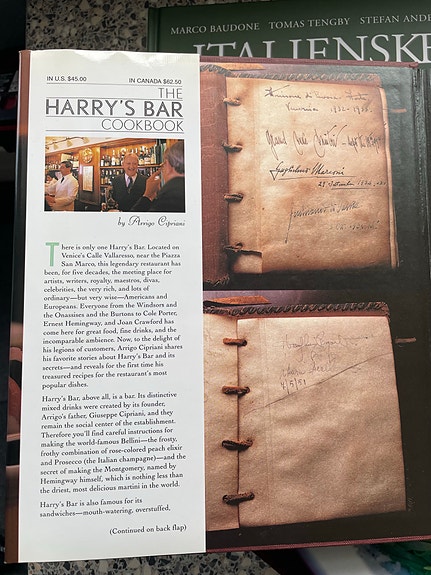 MARCO BAUDONE TOMAS TENGBY STEFAN ANDE
ITALIENSKE
IN U.S. $45.00 IN CANADA $62.50
THE
HARRY'S BAR
COOKBOOK
by Arrigo Cipriani
There is only one Harry's Bar. Located on
Venice's Calle Vallaresso, near the Piazza
San Marco, this legendary restaurant has
been, for five decades, the meeting place for
artists, writers, royalty, maestros, divas,
celebrities, the very rich, and lots of
ordinary—but very wise—Americans and
Europeans. Everyone from the Windsors and
the Onassises and the Burtons to Cole Porter,
Ernest Hemingway, and Joan Crawford has
come here for great food, fine drinks, and the
incomparable ambience. Now, to the delight of
his legions of customers, Arrigo Cipriani shares
his favorite stories about Harry's Bar and its
secrets—and reveals for the first time his
treasured recipes for the restaurant's most
popular dishes.
Harry's Bar, above all, is a bar. Its distinctive
mixed drinks were created by its founder,
Arrigo's father, Giuseppe Cipriani, and they
remain the social center of the establishment.
Therefore you'll find careful instructions for
making the world-famous Bellini—the frosty,
frothy combination of rose-colored peach elixir
and Prosecco (the Italian champagne)—and the
secret of making the Montgomery, named by
Hemingway himself, which is nothing less than
the driest, most delicious martini in the world.
Harry's Bar is also famous for its
sandwiches—mouth-watering, overstuffed,
(Continued on back flap)
Guglielmo Marconi
4/5/51